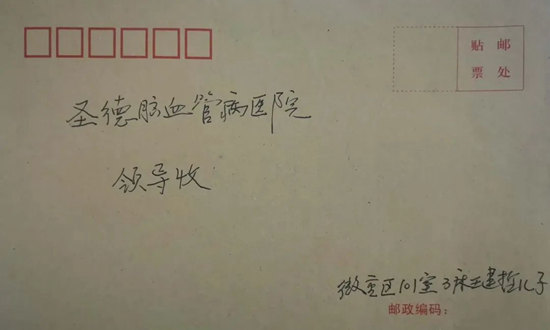 贴 邮
票 处
圣德脑血管病医院
领导收
微重区101室3床王建哲儿子
邮政编码：